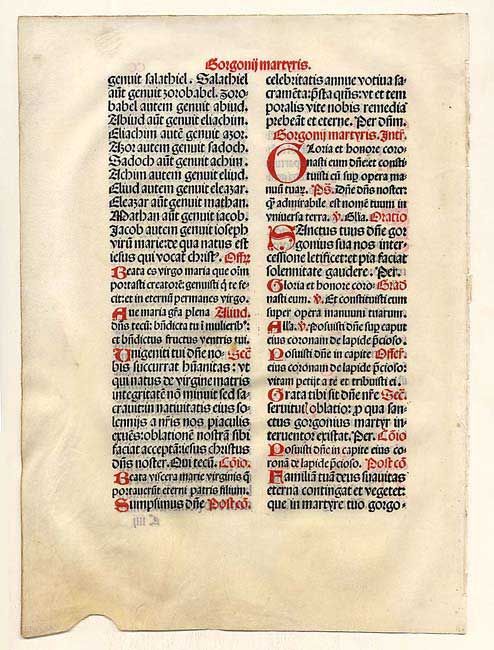 Gorgonij martyris.
genuit salathiel. Salathiel
aūt genuit zorobabel. Zoro-
babel autem genuit abiud.
Abiud aūt genuit eliachim.
Eliachim autē genuit azor.
Azor autem genuit sadoch.
Sadoch aūt genuit achim.
Achim autem genuit eliud.
Eliud autem genuit eleazar.
Eleazar aūt genuit mathan.
Mathan aūt genuit iacob.
Jacob autem genuit ioseph
virū marie: de qua natus est
iesus qui vocať christꝰ. Offꝫ
Beata es virgo maria que oīm
portasti creatorē: genuisti q̄ te fe-
cit: et in eternū permanes virgo.
Aue maria gr̄a plena Aliud.
dn̄s tecū: bn̄dicta tu ī mulieribꝰ:
et bn̄dictus fructus ventris tui.
Unigeniti tui dn̄e no- Secꝫ
bis succurrat hūanitas: vt
qui natus de virgine matris
integritatē nō minuit sed sa-
crauit: in natiuitatis eius so-
lennijs a nr̄is nos piaculis
exuēs: oblationē nostrā sibi
faciat acceptā: iesus christus
dn̄s noster. Qui tecū. Cōio.
Beata viscera marie virginis q̄
portauerūt eterni patris filium.
Sumpsimus dn̄e Postcō.
celebritatis annue votiua sa-
cramēta: p̄sta q̄sus: vt et tem
poralis vite nobis remedia
prebeāt et eterne. Per dn̄m.
Gorgonij martyris. Intꝫ.
Gloria et honore coro-
nasti eum dn̄e: et consti
tuisti eū sup̱ opera ma
nuū tuaꝝ. Ps. Dn̄e dn̄s noster:
q̄ admirabile est nomē tuum in
vniuersa terra. ℣. Gl̄ia. Oratio
Sanctus tuus dn̄e gor
gonius sua nos inter-
cessione letificet: et pia faciat
solennitate gaudere. Per.
Gloria et honore coro- Grad
nasti eum. ℣. Et constituisti eum
super opera manuum tuarum.
Alla. ℣. Posuisti dn̄e sup̱ caput
eius coronam de lapide p̄cioso.
Posuisti dn̄e in capite Offeꝫ.
eius coronam de lapide p̄cioso:
vitam petijt a te et tribuisti ei.
Grata tibi sit dn̄e nr̄e Secꝫ.
seruitutꝭ oblatio: p̱ qua san-
ctus gorgonius martyr in
teruentor existat. Per. Cōio
Posuisti dn̄e in capite eius co-
ronā de lapide p̄cioso. Postcō
Familiā tuā deus suauitas
eterna contingat et vegetet:
que in martyre tuo gorgo-